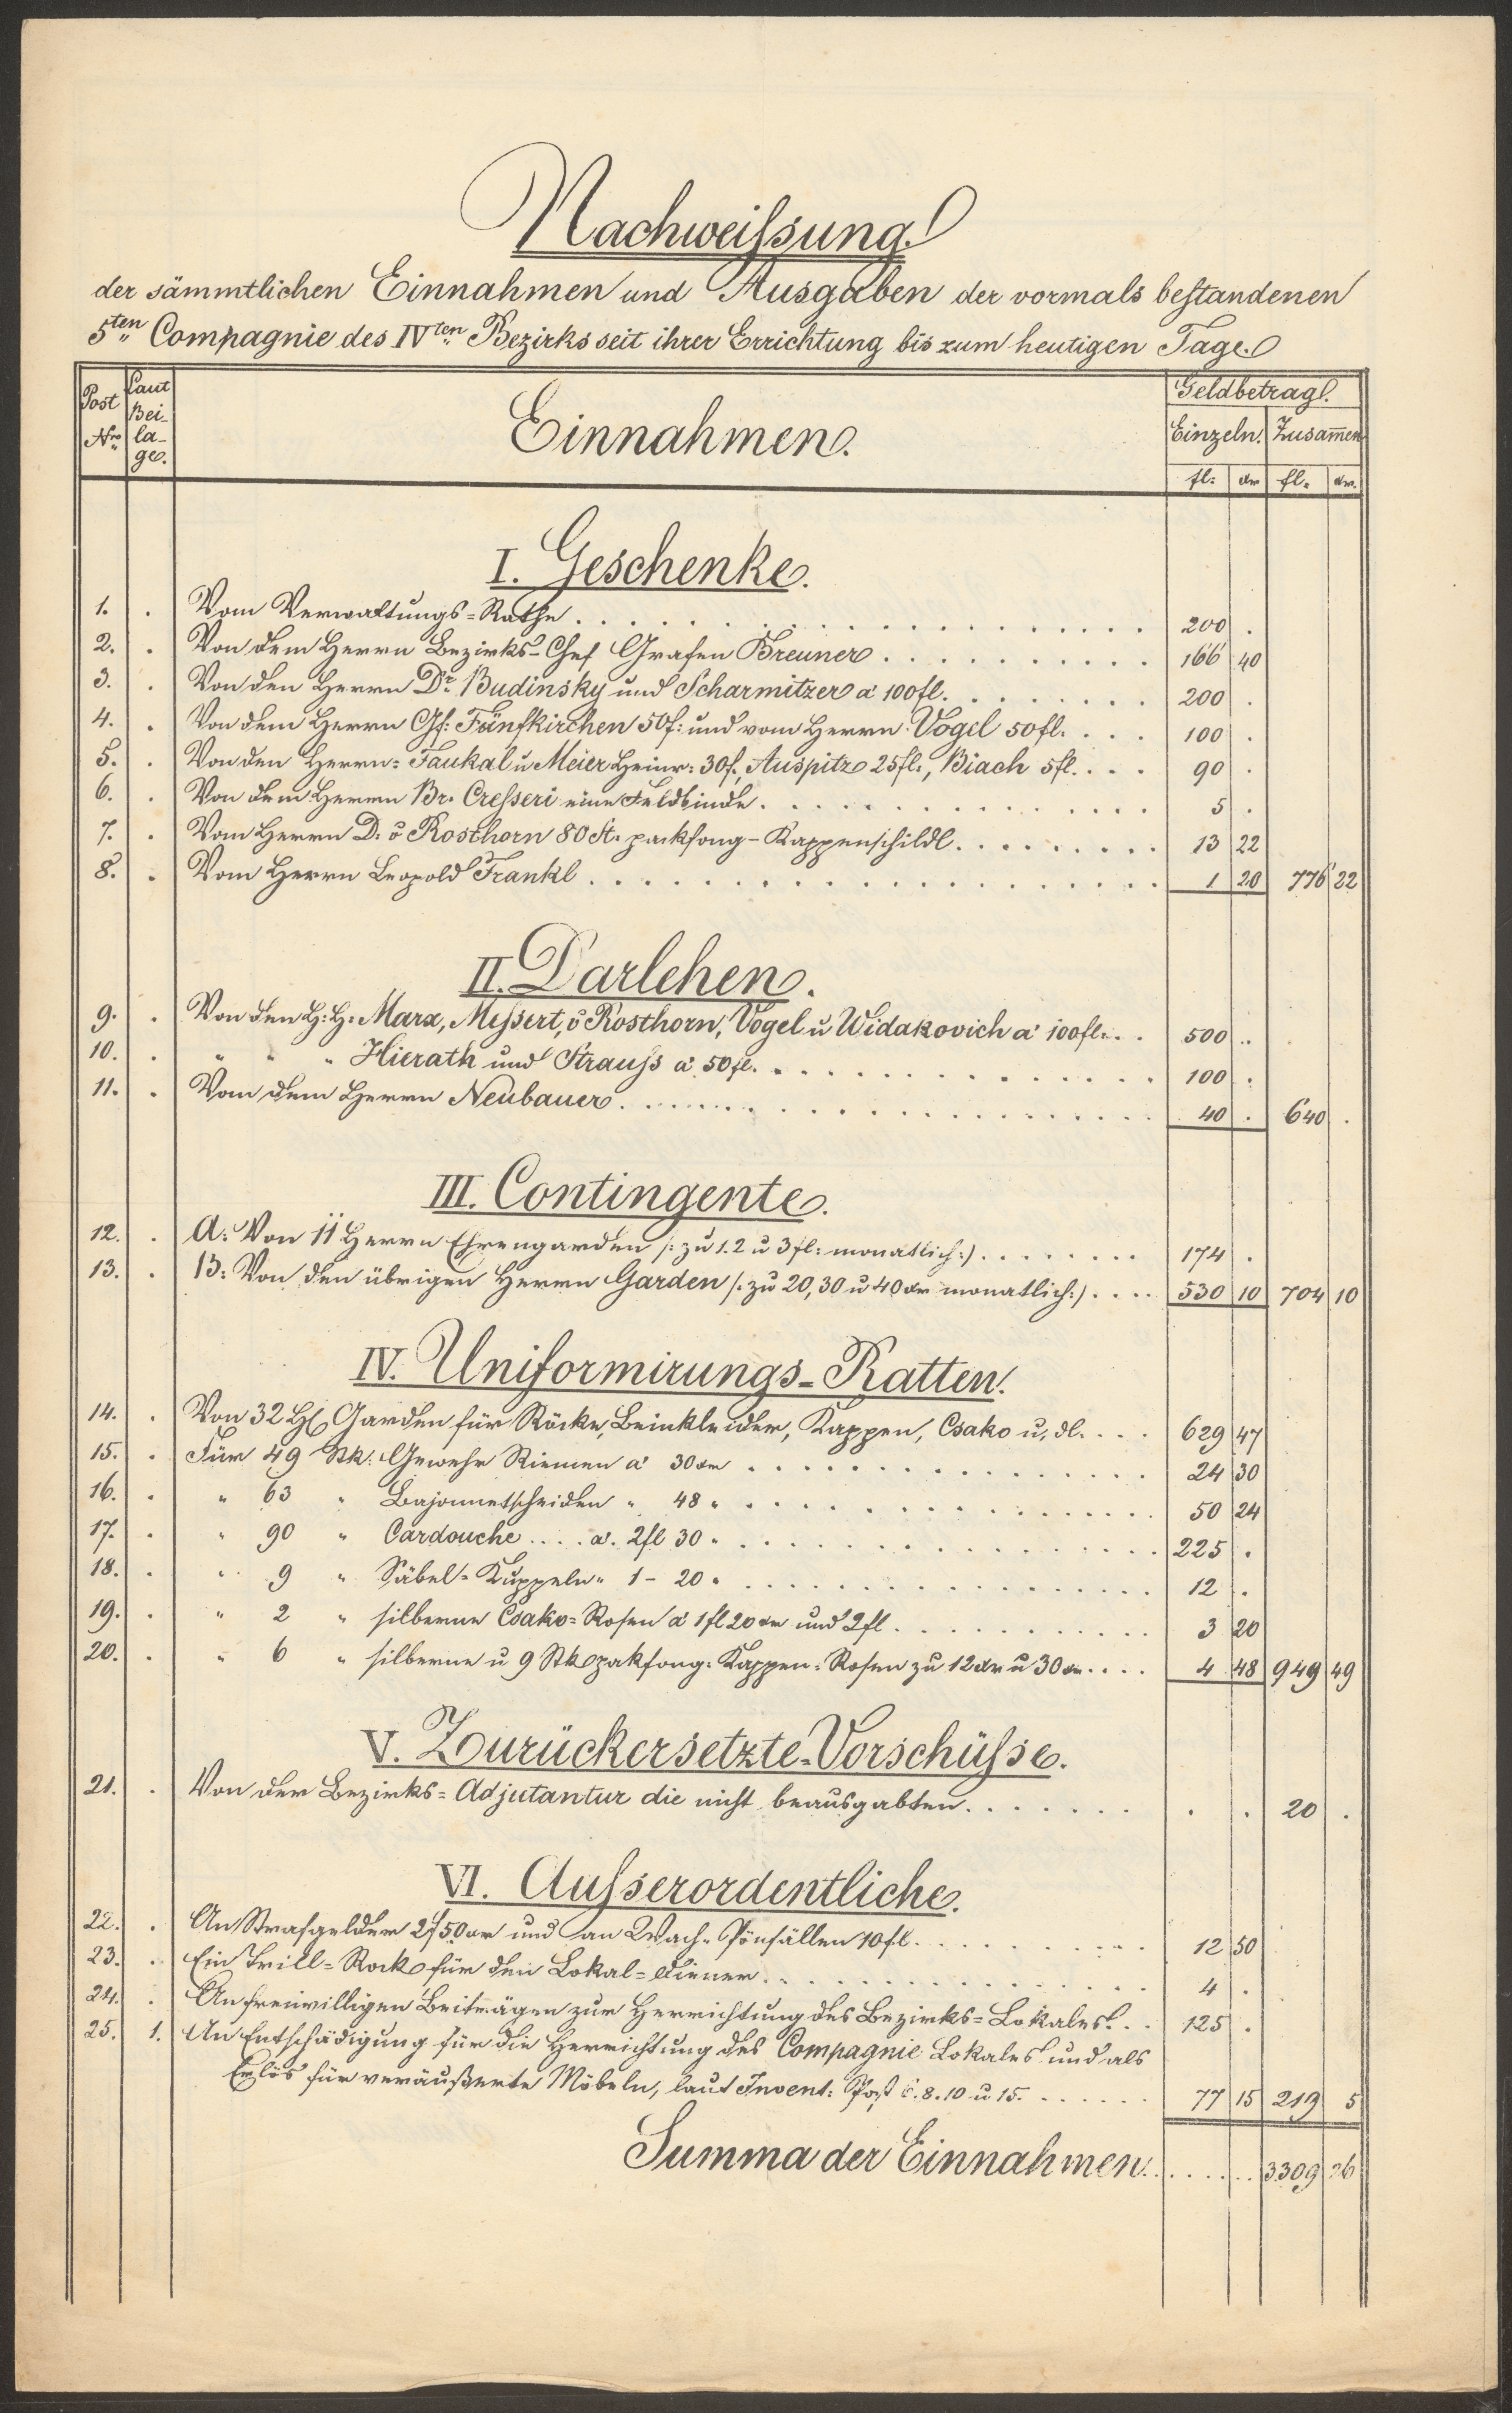 Nachweißung
der sämmtlichen Einnahmen und Ausgaben der vormals bestandenen
5ten Compagnie des IVten Bezirks seit ihrer Errichtung bis zum heutigen Tage.
Post Nro Laut Bei- la- ge. Einnahmen. Geldbetrag.
Einzeln. Zusam̅en
fl: xr fl. xr.
I. Geschenke.
1. . Vom Verwaltungs=Rathe . . . 200 .
2. . Von dem Herrn Bezirks-Chef Grafen Breuner . . . 166 40
3. . Von den Herrn Dr. Budinsky und Scharmitzer a 100fl. . . . 200 .
4. . Von dem Herrn Gf: Fünfkirchen 50f: und vom Herrn Vogel 50fl. . . . 100 .
5. . Von den Herrn: Taukal u Meier Heinr: 30f., Auspitz 25fl., Biach 5fl. . . . 90 .
6. . Von dem Herrn Br. Cresseri eine Feldbinde. . . . 5 .
7. . Vom Herrn D. v Rosthorn 80 St. packfong-Kappenschildl. . . . 13 22
8. . Vom Herrn Leopold Frankl . . . 1 20 776 22
II. Darlehen.
9. . Von den H: H: Marx, Messert, v Rosthorn, Vogel u Widakovich a 100fl. . . . 500 .
10. . " " " Hierath und Strauß a 50fl. . . . 100 .
11. . Von dem Herrn Neubauer. . . . 40 . 640 .
III. Contingente.
12. . A: Von 11 Herrn Ehrengarden /: zu 1. 2 u 3 fl: monatlich :/ . . . 174 .
13. . B: Von den übrigen Herrn Garden /: zu 20, 30 u 40 xr monatlich :/ . . . 530 10 704 10
IV. Uniformirungs-Ratten.
14. . Von 32 H. Garden für Röcke, Beinkleider, Kappen, Csako u. dl. . . . 629 47
15. . Für 49 Stk: Gewehr Riemen a 30xr . . . 24 30
16. . " 63 " Bajonnetscheiden " 48 " . . . 50 24
17. . " 90 " Cardouche . . . . a. 2fl 30 " . . . 225 .
18. . " 9 " Säbel=Kuppeln " 1 - 20 " . . . 12 .
19. . " 2 " silberne Csako=Rosen a 1fl 20xr und 2fl . . . 3 20
20. . " 6 " silberne u 9 Stk pakfong=Kappen=Rosen zu 12xr u 30xr. . . . 4 48 949 49
V. Zurückersetzte-Vorschüsse.
21. . Von der Bezirks=Adjutantur die nicht beausgabten. . . . . . 20 .
VI. Ausserordentliche.
22. . An Strafgelder 2f 50xr und an Wach-Pönfällen 10fl. . . . 12 50
23. . Ein Trill=Rock für den Lokal=Diener. . . . 4 .
24. . An freiwilligen Beiträgen zur Herrichtung des Bezirks=Lokales. . . 125 .
25. 1. An Entschädigung für die Herrichtung des Compagnie Lokales und als
Erlös für veräußerte Möbeln, laut Invent: Post 6. 8. 10 u 15. . . . 77 15 219 5
Summa der Einnahmen. . . . 3309 26